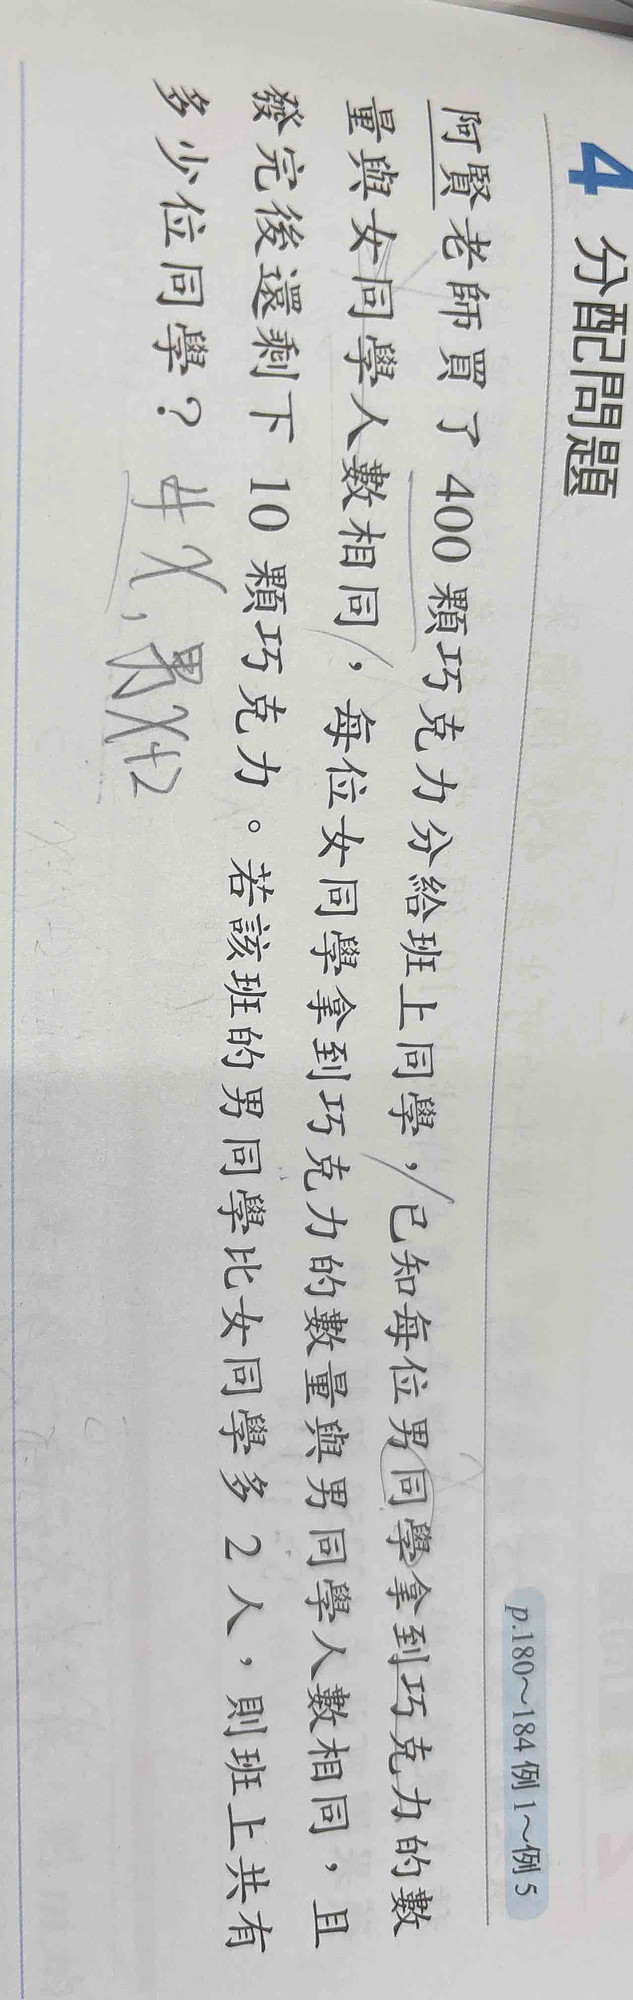 4 分配問題
p.180～184 例1～例5
阿賢老師買了 400 顆巧克力分給班上同學，已知每位男同學拿到巧克力的數
量與女同學人數相同，每位女同學拿到巧克力的數量與男同學人數相同，且
發完後還剩下 10 顆巧克力。若該班的男同學比女同學多 2 人，則班上共有
多少位同學？
女x, 男x+2